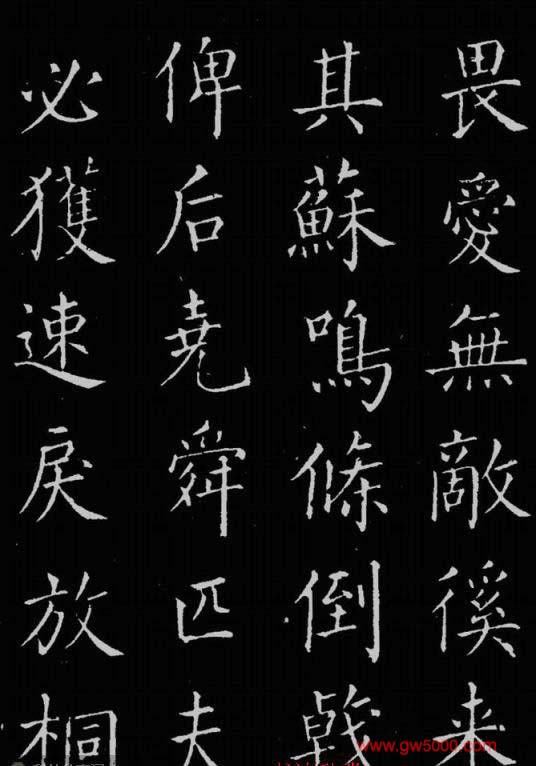 畏愛無敵徯来
其蘇鳴條倒戟
俾后堯舜匹夫
必獲速戾放桐
www.gw5000.com